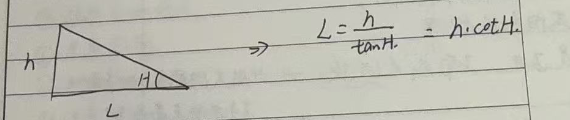 h
H
L
⇒ L = h/tanH. = h·cotH.